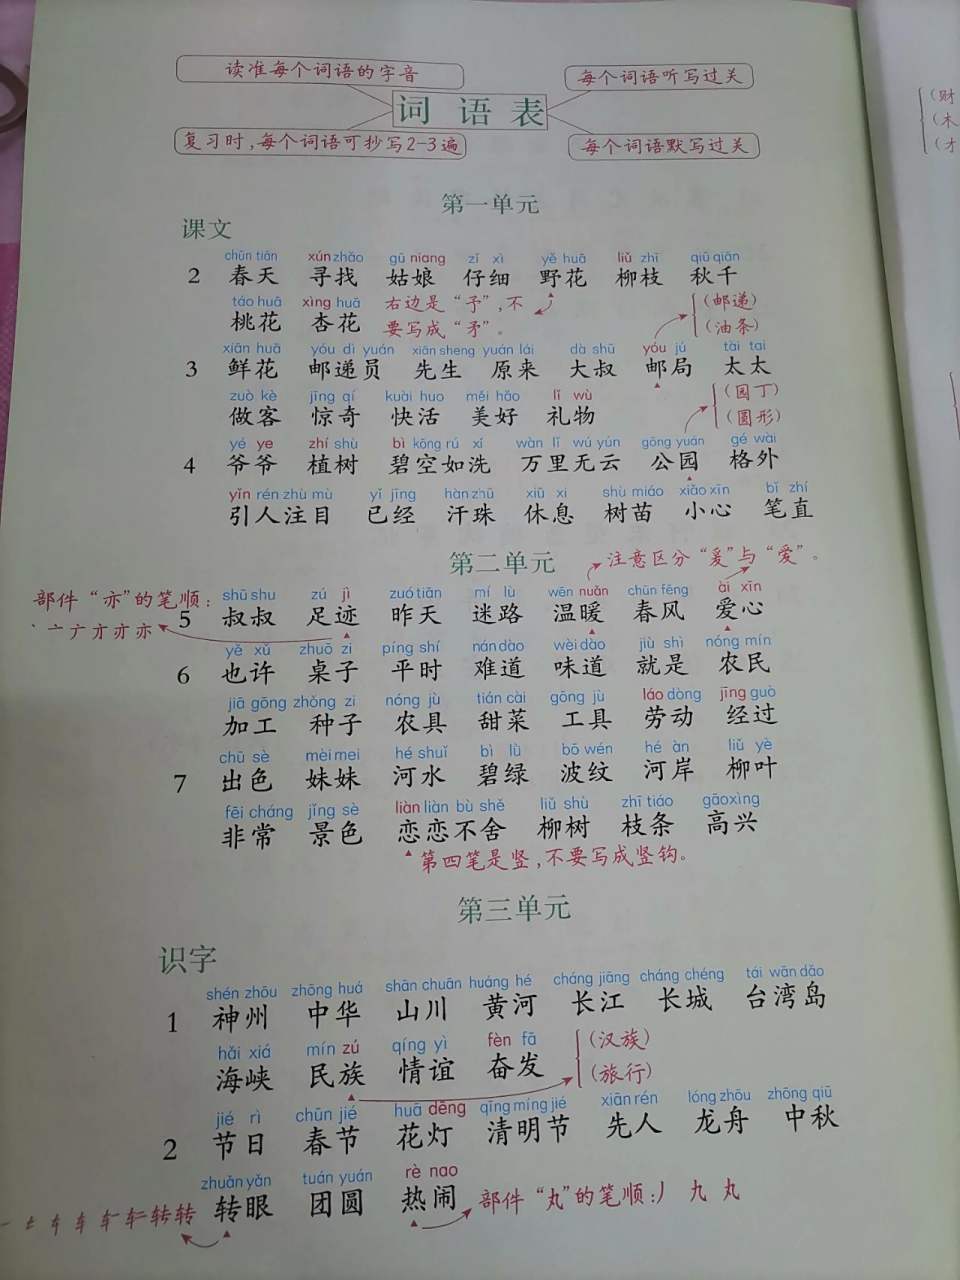 读准每个词语的字音
每个词语听写过关
词 语 表
复习时,每个词语可抄写2-3遍
每个词语默写过关
(财
(木
(才
第一单元
课文
chūn tiān xún zhǎo gū niang zǐ xì yě huā liǔ zhī qiū qiān
2 春天 寻找 姑娘 仔细 野花 柳枝 秋千
táo huā xìng huā
桃花 杏花
右边是“予”,不
要写成“矛”。
(邮递)
(油条)
xiān huā yóu dì yuán xiān sheng yuán lái dà shū yóu jú tài tai
3 鲜花 邮递员 先生 原来 大叔 邮局 太太
zuò kè jīng qí kuài huo měi hǎo lǐ wù
做客 惊奇 快活 美好 礼物
(园丁)
(圆形)
yé ye zhí shù bì kōng rú xǐ wàn lǐ wú yún gōng yuán gé wài
4 爷爷 植树 碧空如洗 万里无云 公园 格外
yǐn rén zhù mù yǐ jīng hàn zhū xiū xi shù miáo xiǎo xīn bǐ zhí
引人注目 已经 汗珠 休息 树苗 小心 笔直
第二单元
注意区分“爰”与“爱”。
部件“亦”的笔顺:
丶 亠 亣 亦 亦 亦
shū shu zú jì zuó tiān mí lù wēn nuǎn chūn fēng ài xīn
5 叔叔 足迹 昨天 迷路 温暖 春风 爱心
yě xǔ zhuō zi píng shí nán dào wèi dào jiù shì nóng mín
6 也许 桌子 平时 难道 味道 就是 农民
jiā gōng zhòng zi nóng jù tián cài gōng jù láo dòng jīng guò
加工 种子 农具 甜菜 工具 劳动 经过
chū sè mèi mei hé shuǐ bì lǜ bō wén hé àn liǔ yè
7 出色 妹妹 河水 碧绿 波纹 河岸 柳叶
fēi cháng jǐng sè liàn liàn bù shě liǔ shù zhī tiáo gāo xìng
非常 景色 恋恋不舍 柳树 枝条 高兴
第四笔是竖,不要写成竖钩。
第三单元
识字
shén zhōu zhōng huá shān chuān huáng hé cháng jiāng cháng chéng tái wān dǎo
1 神州 中华 山川 黄河 长江 长城 台湾岛
hǎi xiá mín zú qíng yì fèn fā
海峡 民族 情谊 奋发
(汉族)
(旅行)
jié rì chūn jié huā dēng qīng míng jié xiān rén lóng zhōu zhōng qiū
2 节日 春节 花灯 清明节 先人 龙舟 中秋
zhuǎn yǎn tuán yuán rè nao
转眼 团圆 热闹
部件“丸”的笔顺:丿 九 丸